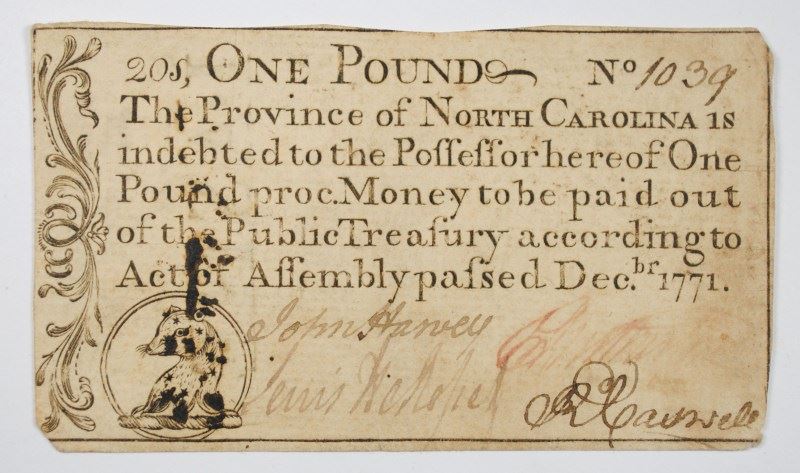 20s, ONE POUND No 1039
The Province of NORTH CAROLINA is
indebted to the Poſſeſſor hereof One
Pound proc. Money to be paid out
of the Public Treaſury according to
Act of Aſſembly paſſed Dec.br 1771.
John Harvey
Lewis
R Caswell